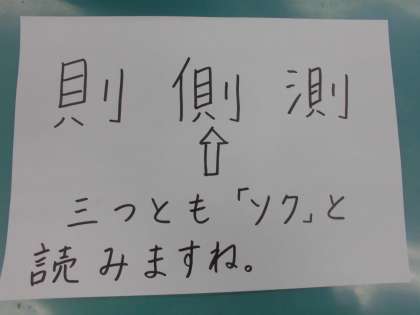 則 側 測
三つとも「ソク」と
読みますね。